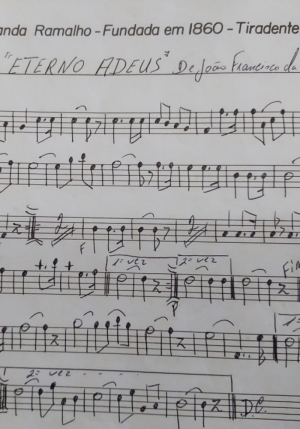 anda Ramalho - Fundada em 1860 - Tiradente
"ETERNO ADEUS" De João Francisco da
F
1ª vez 2ª vez
FIM
P
1ª
2ª vez
D.C.